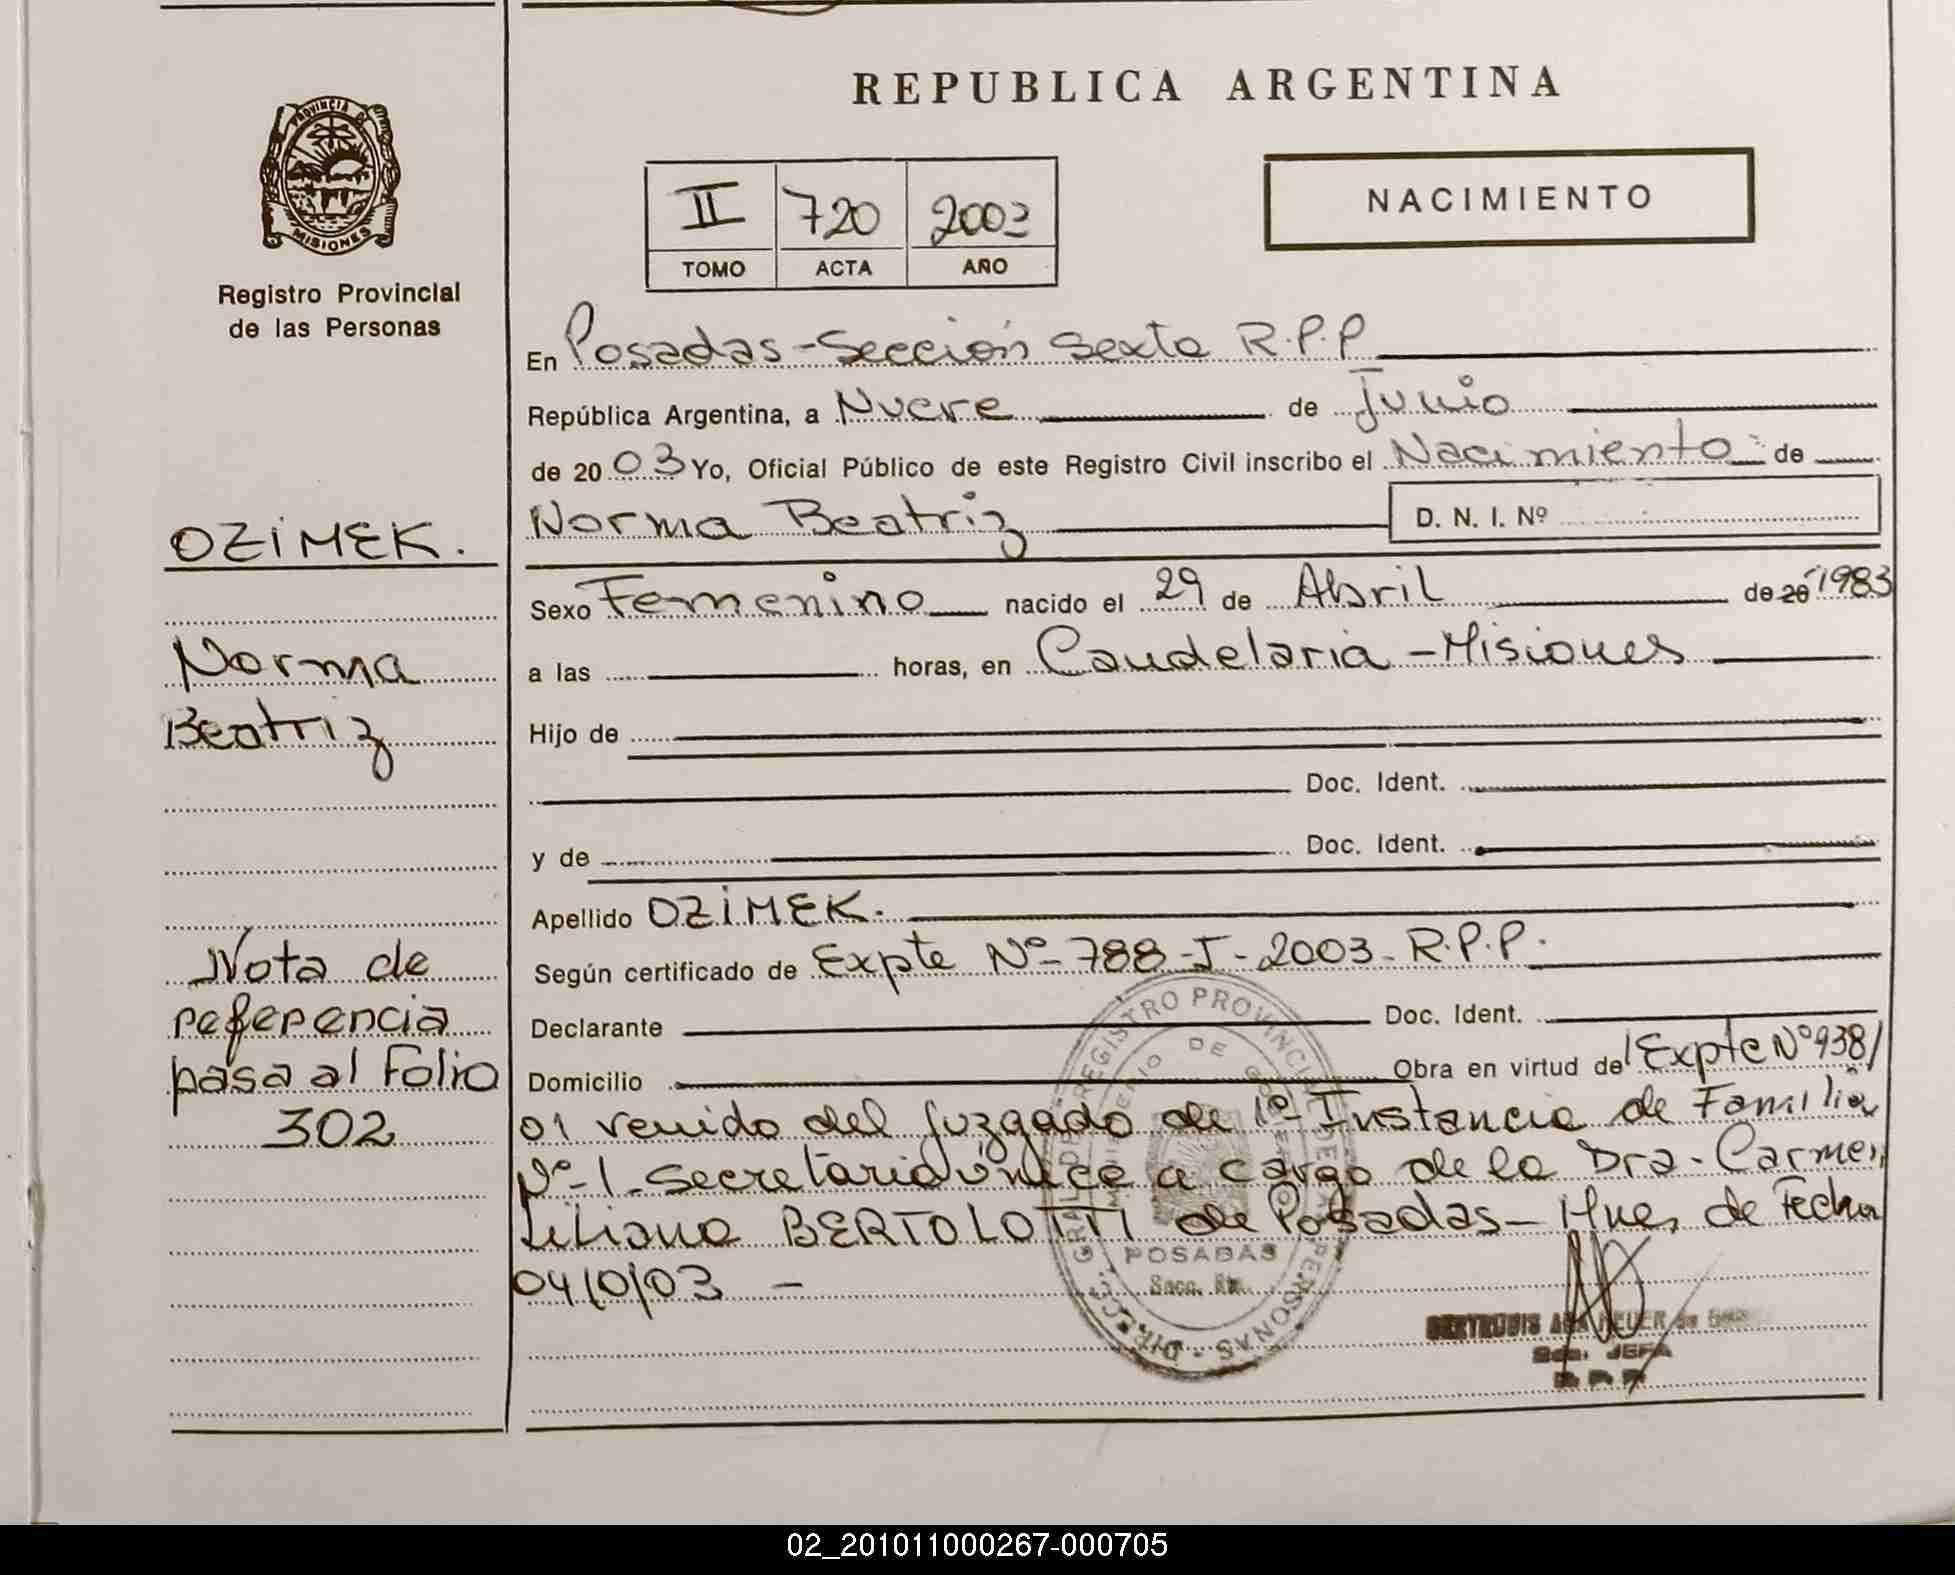 REPUBLICA ARGENTINA
PROVINCIA DE
MISIONES
Registro Provincial
de las Personas
II 720 2003
TOMO ACTA AÑO
NACIMIENTO
En Posadas-Sección Sexta R.P.P
República Argentina, a Nueve de Junio
de 2003 Yo, Oficial Público de este Registro Civil inscribo el Nacimiento de
Norma Beatriz D. N. I. Nº
Sexo Femenino nacido el 29 de Abril de 20 1983
a las horas, en Candelaria - Misiones
Hijo de
Doc. Ident.
y de Doc. Ident.
Apellido OZIMEK.
Según certificado de Expte Nº 788-J-2003-R.P.P.
Declarante Doc. Ident.
Domicilio Obra en virtud del Expte Nº 938/
01 venido del Juzgado de 1º Instancia de Familia
Nº-1-Secretaria única a cargo de la Dra. Carmen
Liliana BERTOLOTTI de Posadas- Mnes, de Fecha
04/0/03 -
OZIMEK.
Norma
Beatriz
Nota de
referencia
pasa al Folio
302
REGISTRO PROVINCIAL DE LAS PERSONAS
POSADAS
JEFA
02_201011000267-000705